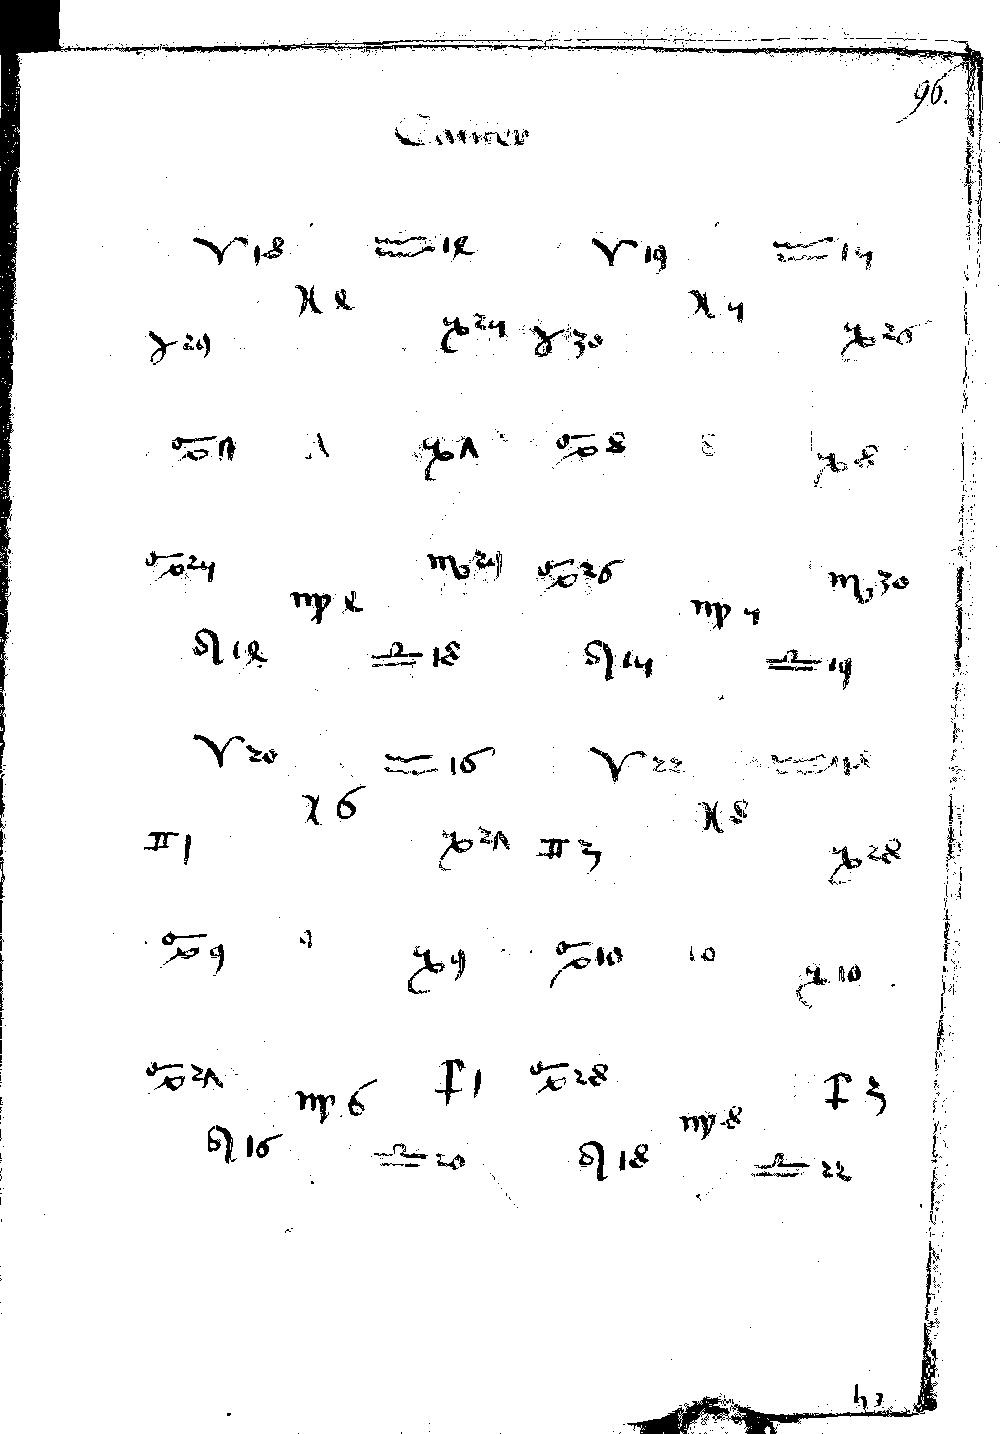 96.
Cancer
♈18 ♒14 ♈19 ♒15
♓ 4 ♓ 5
♉29 ♑25 ♉30 ♑26
♋7 7 ♑7 ♋8 8 ♑8
♋25 ♏29 ♋26 ♏30
♍ 4 ♍ 5
♌14 ♎18 ♌15 ♎19
♈20 ♒16 ♈22 ♒18
♓ 6 ♓ 8
♊1 ♑27 ♊3 ♑28
♋9 9 ♑9 ♋10 10 ♑10
♋27 ♐1 ♋28 ♐3
♍ 6 ♍ 8
♌16 ♎20 ♌18 ♎22